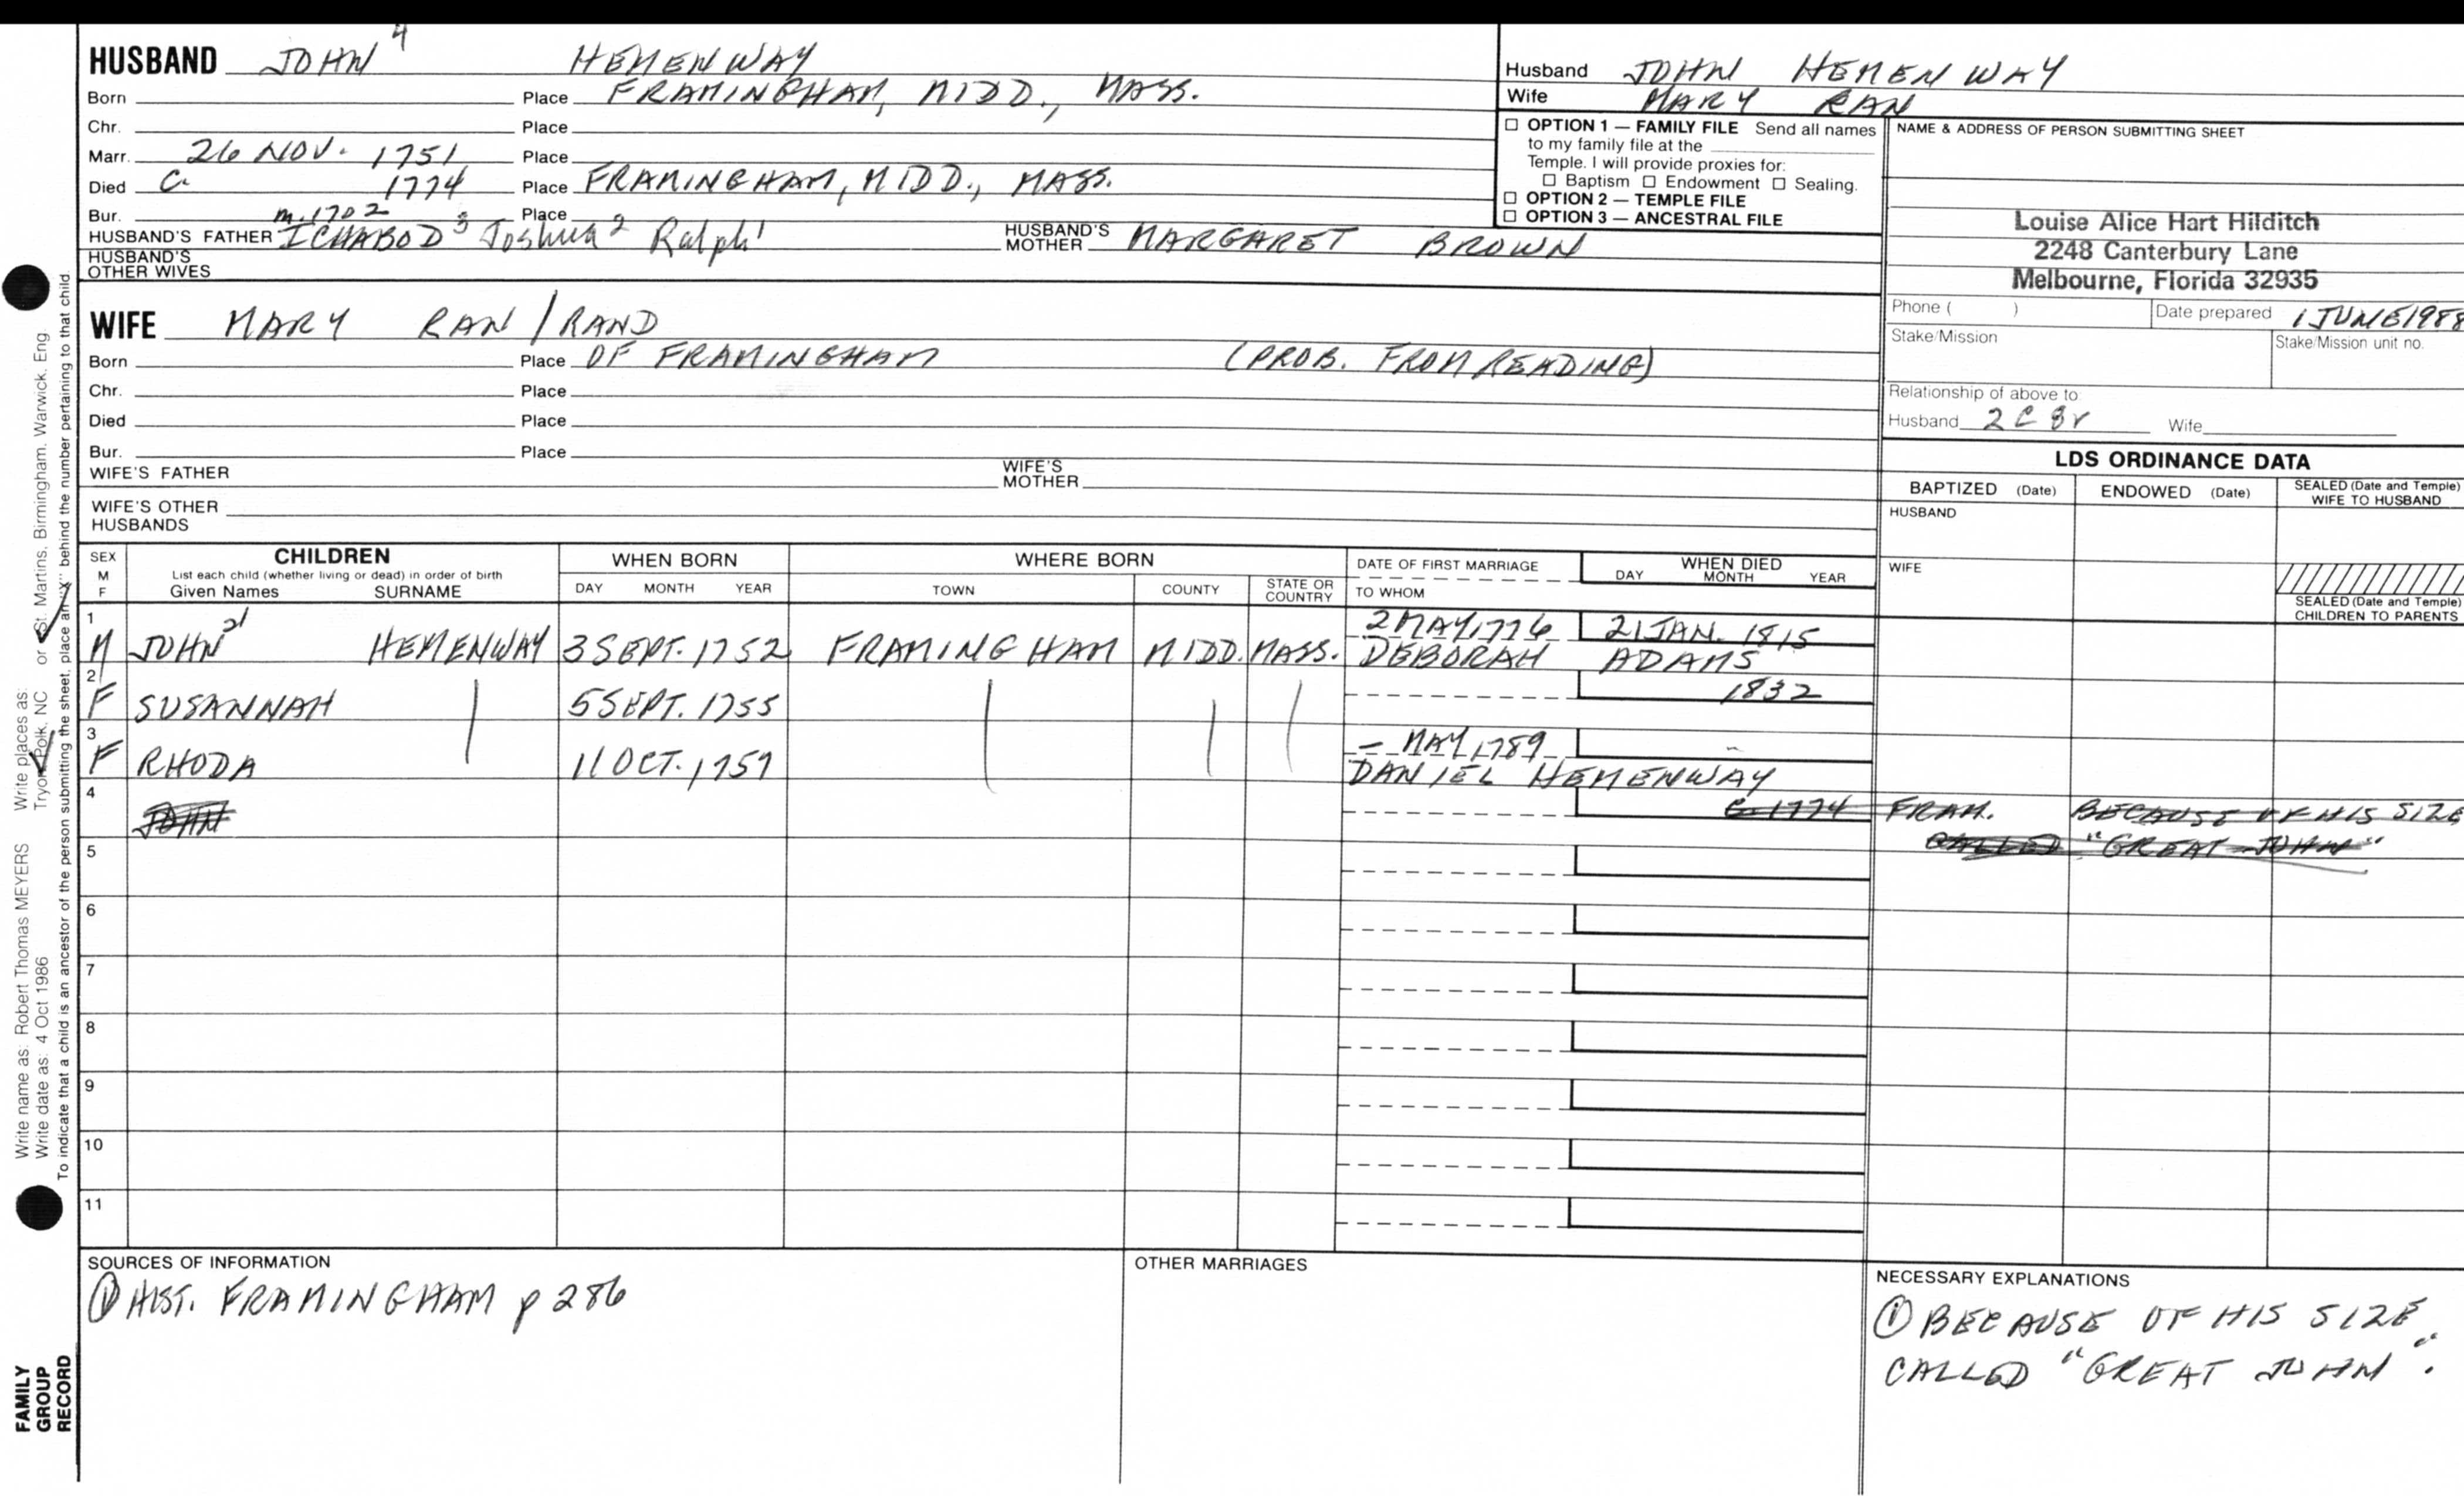 HUSBAND JOHN 4 HEMENWAY
Born Place FRAMINGHAM, MIDD., MASS.
Chr. Place
Marr. 26 NOV. 1751 Place
Died C. 1774 Place FRAMINGHAM, MIDD., MASS.
Bur. Place
m. 1702
HUSBAND'S FATHER ICHABOD 3 Joshua 2 Ralph 1 HUSBAND'S MOTHER MARGARET BROWN
HUSBAND'S OTHER WIVES
WIFE MARY RAN / RAND
Born Place OF FRAMINGHAM (PROB. FROM READING)
Chr. Place
Died Place
Bur. Place
WIFE'S FATHER WIFE'S MOTHER
WIFE'S OTHER HUSBANDS
Husband JOHN HEMENWAY
Wife MARY RAN
☐ OPTION 1 — FAMILY FILE Send all names
to my family file at the
Temple. I will provide proxies for:
☐ Baptism ☐ Endowment ☐ Sealing.
☐ OPTION 2 — TEMPLE FILE
☐ OPTION 3 — ANCESTRAL FILE
NAME & ADDRESS OF PERSON SUBMITTING SHEET
Louise Alice Hart Hilditch
2248 Canterbury Lane
Melbourne, Florida 32935
Phone ( ) Date prepared 1 JUNE 1988
Stake/Mission Stake/Mission unit no.
Relationship of above to
Husband 2C 8r Wife
LDS ORDINANCE DATA
BAPTIZED (Date) ENDOWED (Date) SEALED (Date and Temple) WIFE TO HUSBAND
HUSBAND
WIFE
SEALED (Date and Temple)
CHILDREN TO PARENTS
SEX M F CHILDREN WHEN BORN WHERE BORN DATE OF FIRST MARRIAGE WHEN DIED
List each child (whether living or dead) in order of birth
Given Names SURNAME DAY MONTH YEAR TOWN COUNTY STATE OR COUNTRY TO WHOM DAY MONTH YEAR
1 2 MAY 1776 21 JAN. 1815
M JOHN HEMENWAY 3 SEPT. 1752 FRAMINGHAM MIDD. MASS. DEBORAH ADAMS
2 1832
F SUSANNAH 5 SEPT. 1755
3 — MAY 1789
F RHODA 11 OCT. 1757 DANIEL HEMENWAY
4 C. 1774 FRAM. BECAUSE OF HIS SIZE
JOHN CALLED "GREAT JOHN"
5
6
7
8
9
10
11
SOURCES OF INFORMATION
① HIST. FRAMINGHAM p 286
OTHER MARRIAGES
NECESSARY EXPLANATIONS
① BECAUSE OF HIS SIZE,
CALLED "GREAT JOHN".
Write name as: Robert Thomas MEYERS Write places as:
Write date as: 4 Oct 1986 Tryon, Polk, NC or St. Martins, Birmingham, Warwick, Eng.
To indicate that a child is an ancestor of the person submitting the sheet, place an "X" behind the number pertaining to that child.
FAMILY
GROUP
RECORD